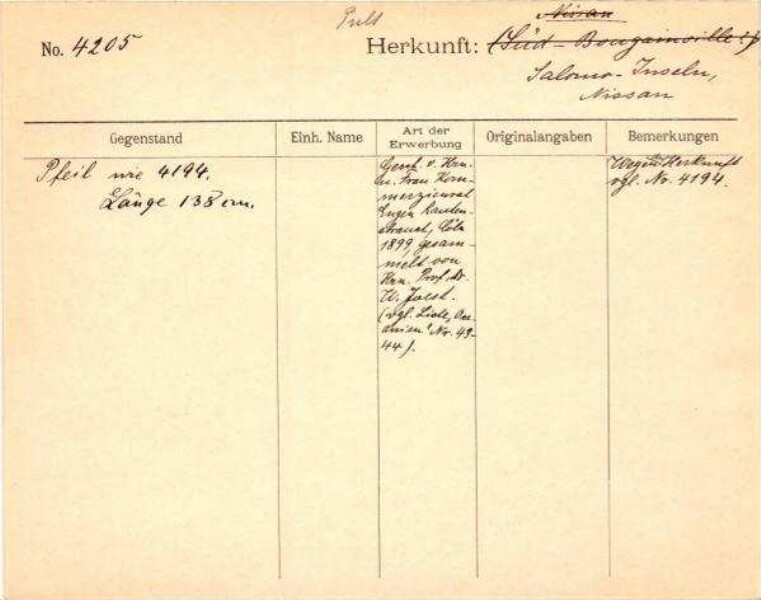 Pult
Nissan
No. 4205 Herkunft: (Süd-Bougainville?)
Salomo-Inseln,
Nissan
Gegenstand
Einh. Name
Art der
Erwerbung
Originalangaben
Bemerkungen
Pfeil wie 4194.
Länge 138 cm.
Gesch. v. Hrn.
u. Frau Kom-
merzienrat
Eugen Rauten-
strauch, Cöln
1899, gesam-
melt von
Hrn. Prof. Dr.
W. Joest.
(vgl. Liste „Oce-
anien" Nr. 43-
44).
Wegen Herkunft
vgl. Nr. 4194.